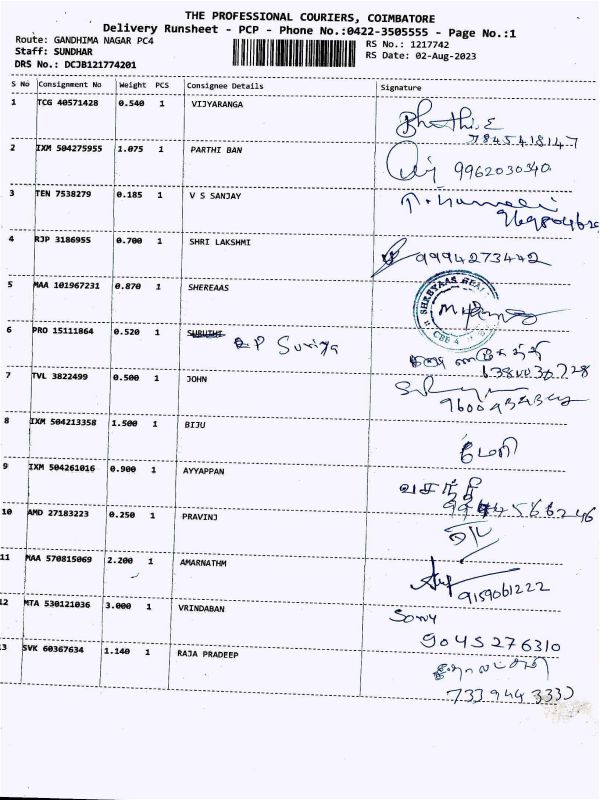 THE PROFESSIONAL COURIERS, COIMBATORE
Delivery Runsheet - PCP - Phone No.:0422-3505555 - Page No.:1
Route: GANDHIMA NAGAR PC4
RS No.: 1217742
Staff: SUNDHAR
RS Date: 02-Aug-2023
DRS No.: DCJB121774201
S No Consignment No Weight PCS Consignee Details Signature
1 TCG 40571428 0.540 1 VIJYARANGA
7845418147
2 IXM 504275955 1.075 1 PARTHI BAN
9962030340
3 TEN 7538279 0.185 1 V S SANJAY
4 RJP 3186955 0.700 1 SHRI LAKSHMI
9994273442
5 MAA 101967231 0.870 1 SHEREAAS
6 PRO 15111864 0.520 1 P Suriya
7 TVL 3822499 0.500 1 JOHN
8 IXM 504213358 1.500 1 BIJU
மேரி
9 IXM 504261016 0.900 1 AYYAPPAN
வசந்தி
10 AMD 27183223 0.250 1 PRAVINJ
11 MAA 570815069 2.200 1 AMARNATHM
9159061222
12 MTA 530121036 3.000 1 VRINDABAN
Sony
9045276310
13 SVK 60367634 1.140 1 RAJA PRADEEP
7339443330